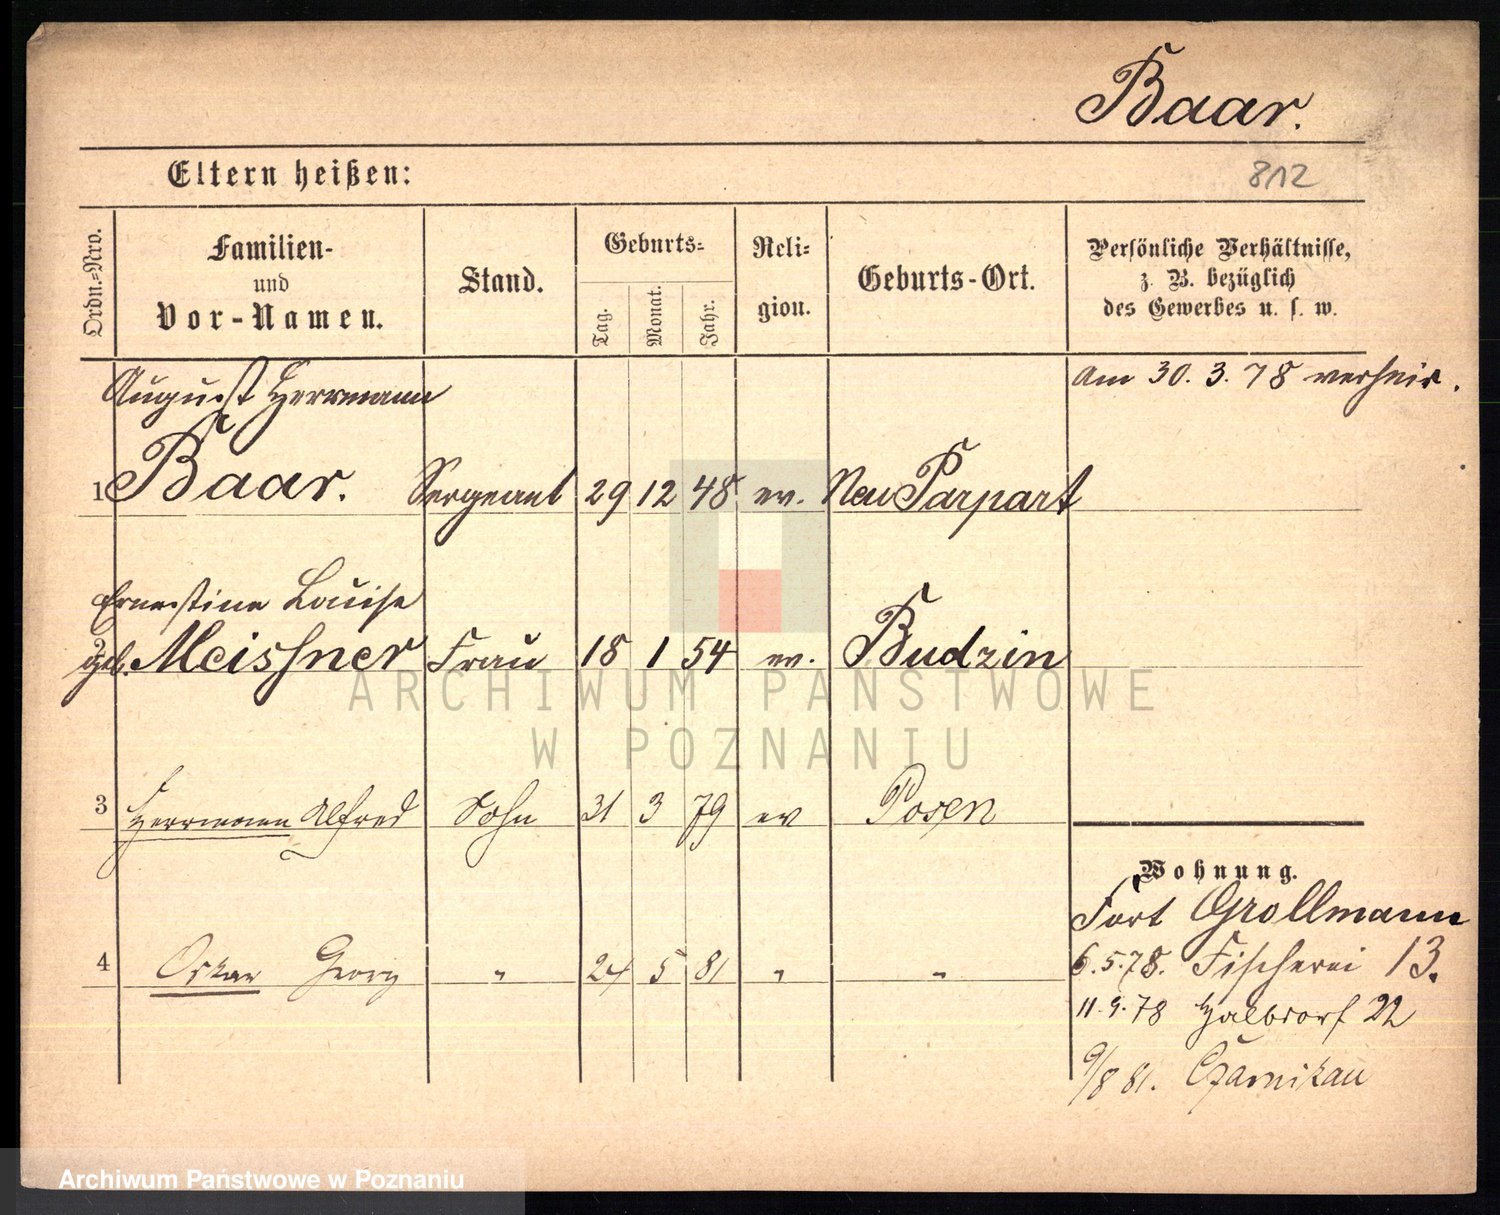 Baar.
Eltern heißen:
812
Ordn.=Nro.
Familien-
und
Vor-Namen.
Stand.
Geburts=
Tag.
Monat.
Jahr.
Reli=
gion.
Geburts-Ort.
Persönliche Verhältnisse,
z. B. bezüglich
des Gewerbes u. s. w.
August Herrmann
am 30. 3. 78 verheir.
1 Baar. Sergeant 29 12 48 ev. Neu Parpart
Ernestine Louise
2 geb. Meissner Frau 18 1 54 ev. Budzin
3 Herrmann Alfred Sohn 31 3 79 ev Posen
Wohnung.
Fort Grollmann
4 Oskar Georg " 24 5 81 " "
6.5.78. Fischerei 13.
11.9.78 Halbdorf 22
9/8 81. Czarnikau
ARCHIWUM PAŃSTWOWE
W POZNANIU
Archiwum Państwowe w Poznaniu